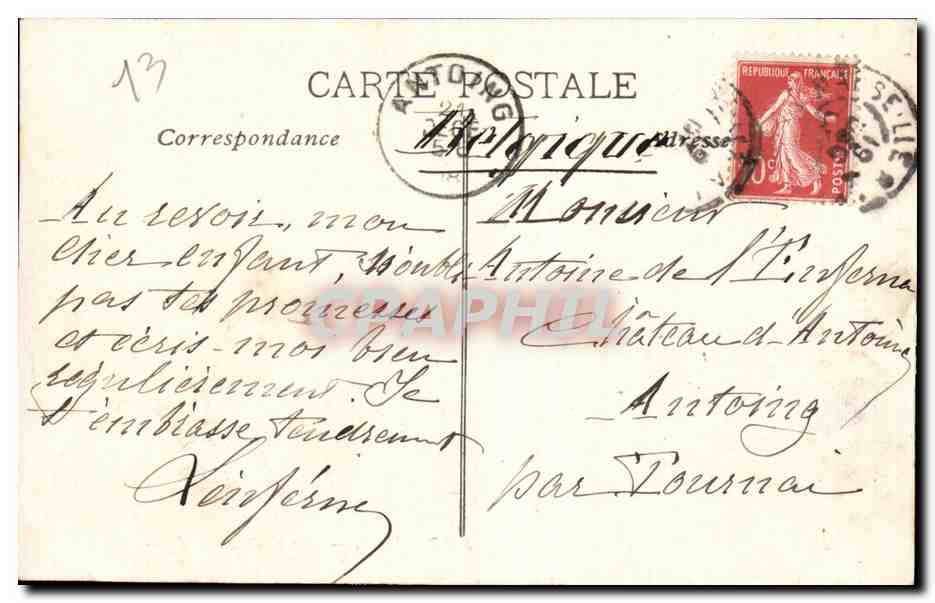 13
CARTE POSTALE
ANTOING
REPUBLIQUE FRANÇAISE
10c
POSTES
MARSEILLE
Correspondance
Belgique
Adresse
Au revoir, mon
cher enfant, n'oublie
pas tes promesses
et écris-moi bien
régulièrement. Je
t'embrasse tendrement
Monsieur
Antoine de
Château d'Antoing
Antoing
par Tournai
CPAPHIL